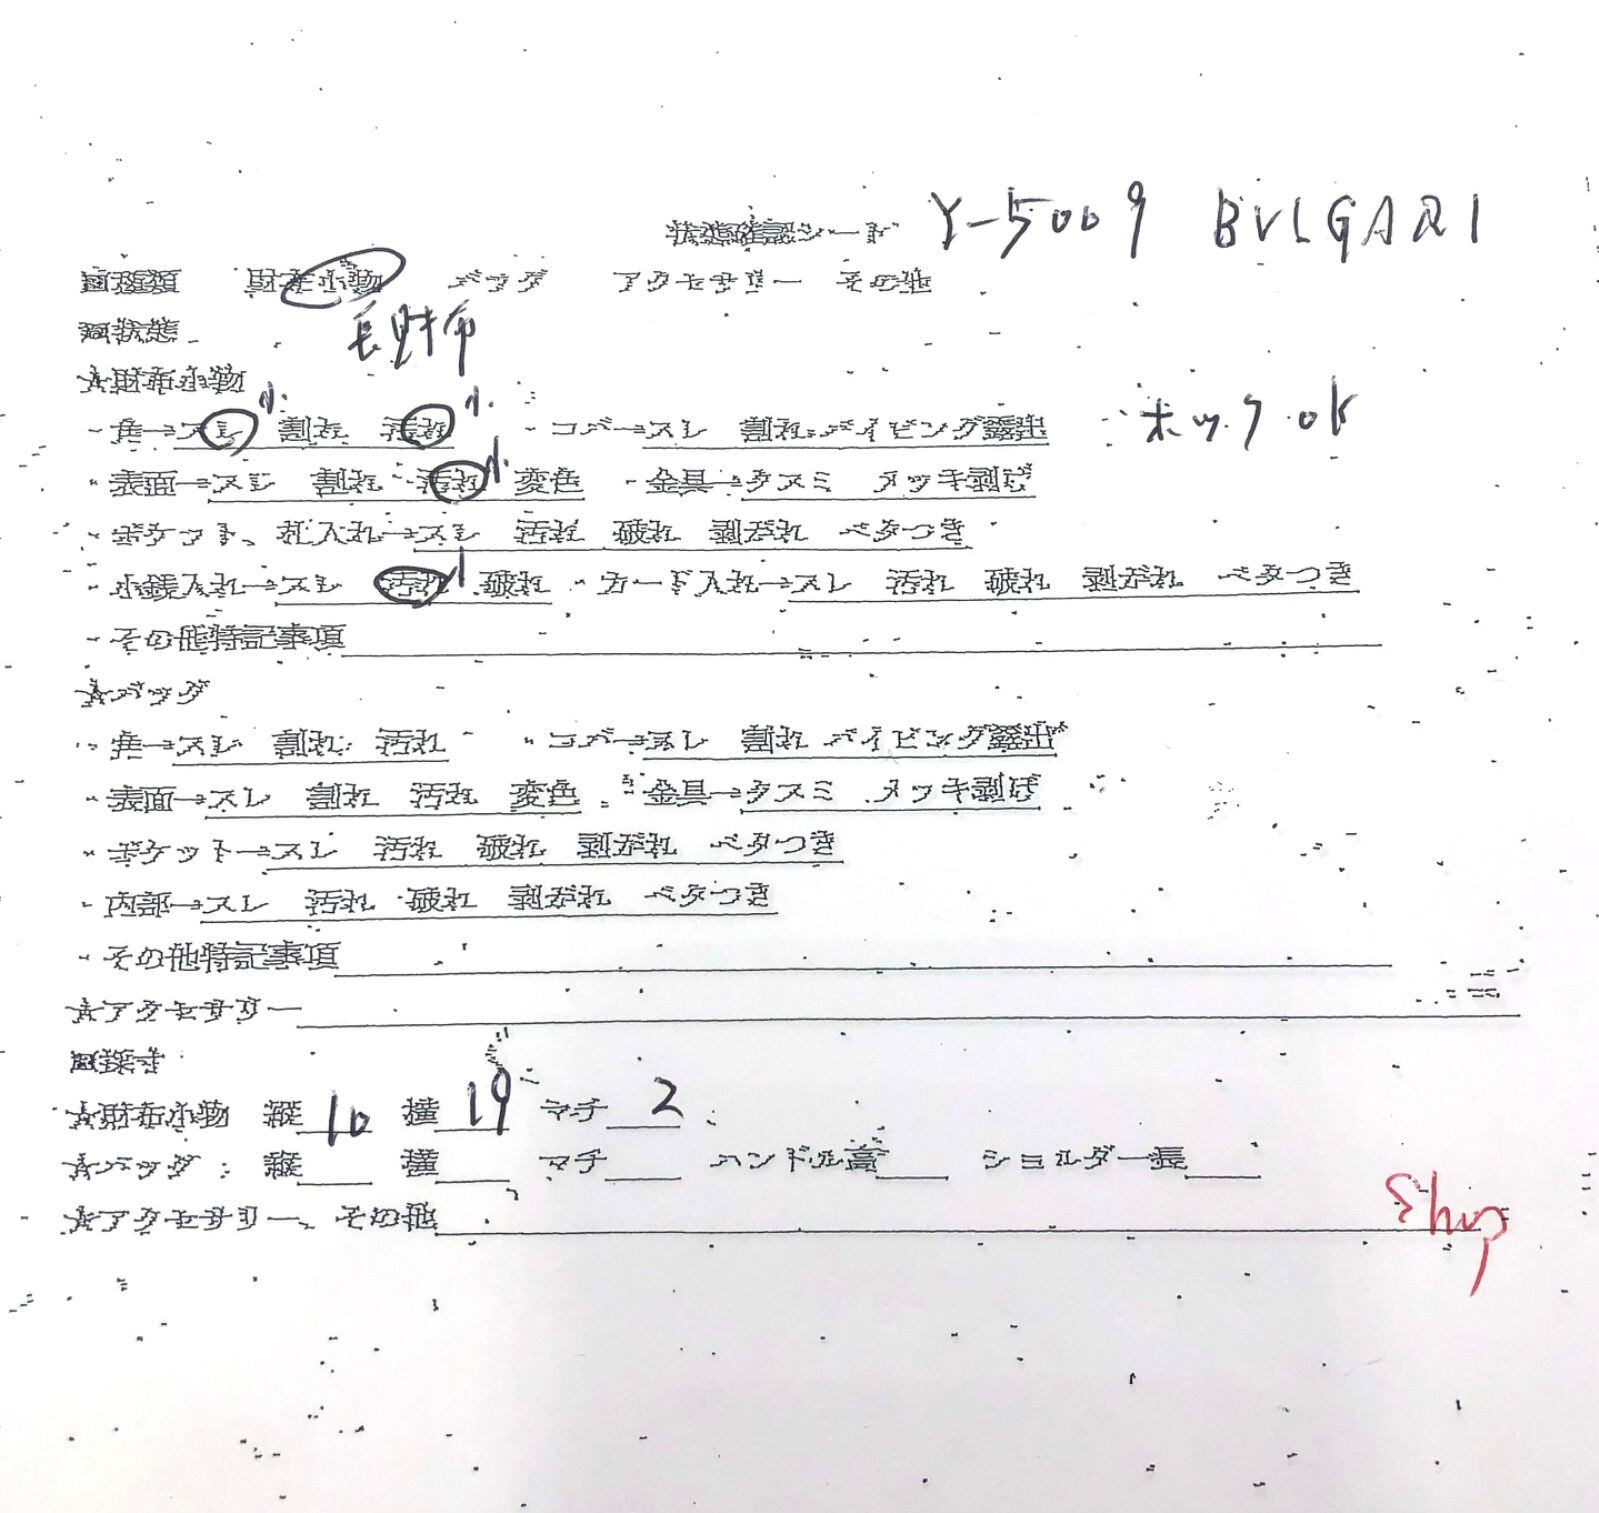 状態確認シート Y-5009 BVLGARI
種類 財布小物 バッグ アクセサリー その他
状態 長財布
★財布小物
・角→スレ 小 割れ 汚れ 小 ・コバ→スレ 割れ パイピング露出 ホック.ok
・表面→スレ 割れ 汚れ 小 変色 ・金具→クスミ メッキ剥げ
・ポケット、札入れ→スレ 汚れ 破れ 剥がれ ベタつき
・小銭入れ→スレ 汚れ 破れ ・カード入れ→スレ 汚れ 破れ 剥がれ ベタつき
・その他特記事項
★バッグ
・角→スレ 割れ 汚れ ・コバ→スレ 割れ パイピング露出
・表面→スレ 割れ 汚れ 変色 ・金具→クスミ メッキ剥げ
・ポケット→スレ 汚れ 破れ 剥がれ ベタつき
・内部→スレ 汚れ 破れ 剥がれ ベタつき
・その他特記事項
★アクセサリー
採寸
★財布小物 縦 10 横 19 マチ 2
★バッグ: 縦 横 マチ ハンドル高 ショルダー長
★アクセサリー、その他